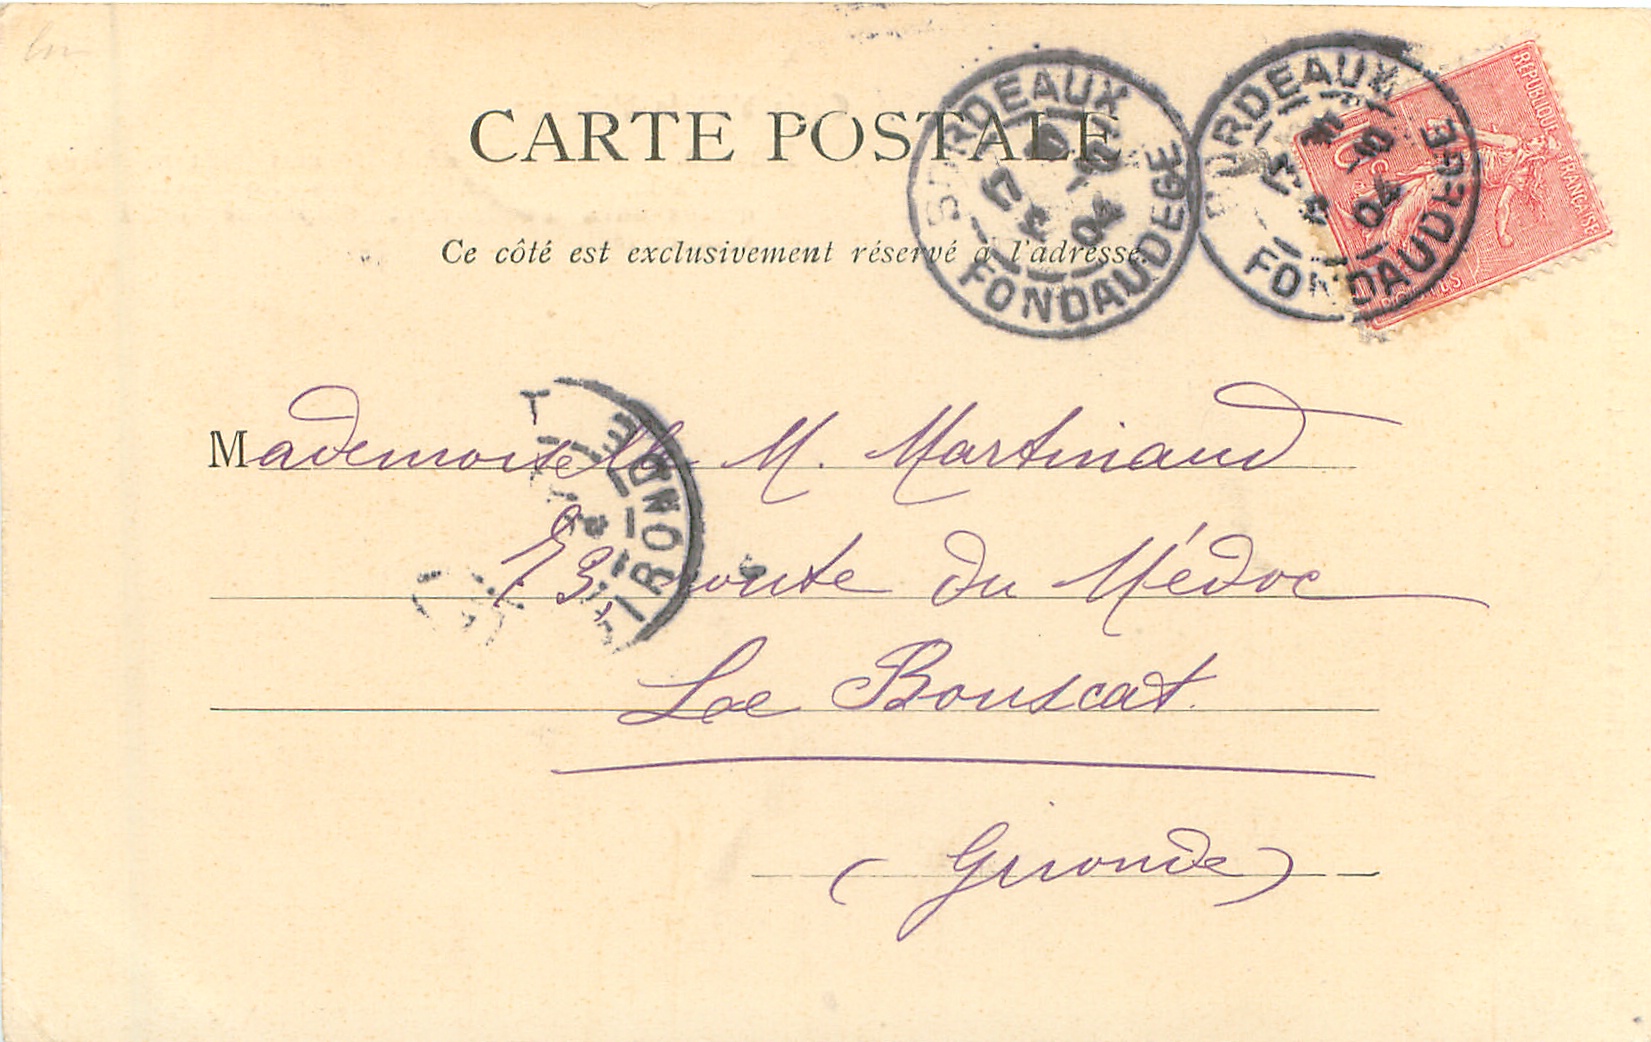 CARTE POSTALE
Ce côté est exclusivement réservé à l'adresse.
BORDEAUX
17
04
FONDAUDEGE
BORDEAUX
17
04
FONDAUDEGE
REPUBLIQUE FRANCAISE
POSTES
Mademoiselle M. Martinaud
route du Médoc
Le Bouscat.
(Gironde)
GIRONDE